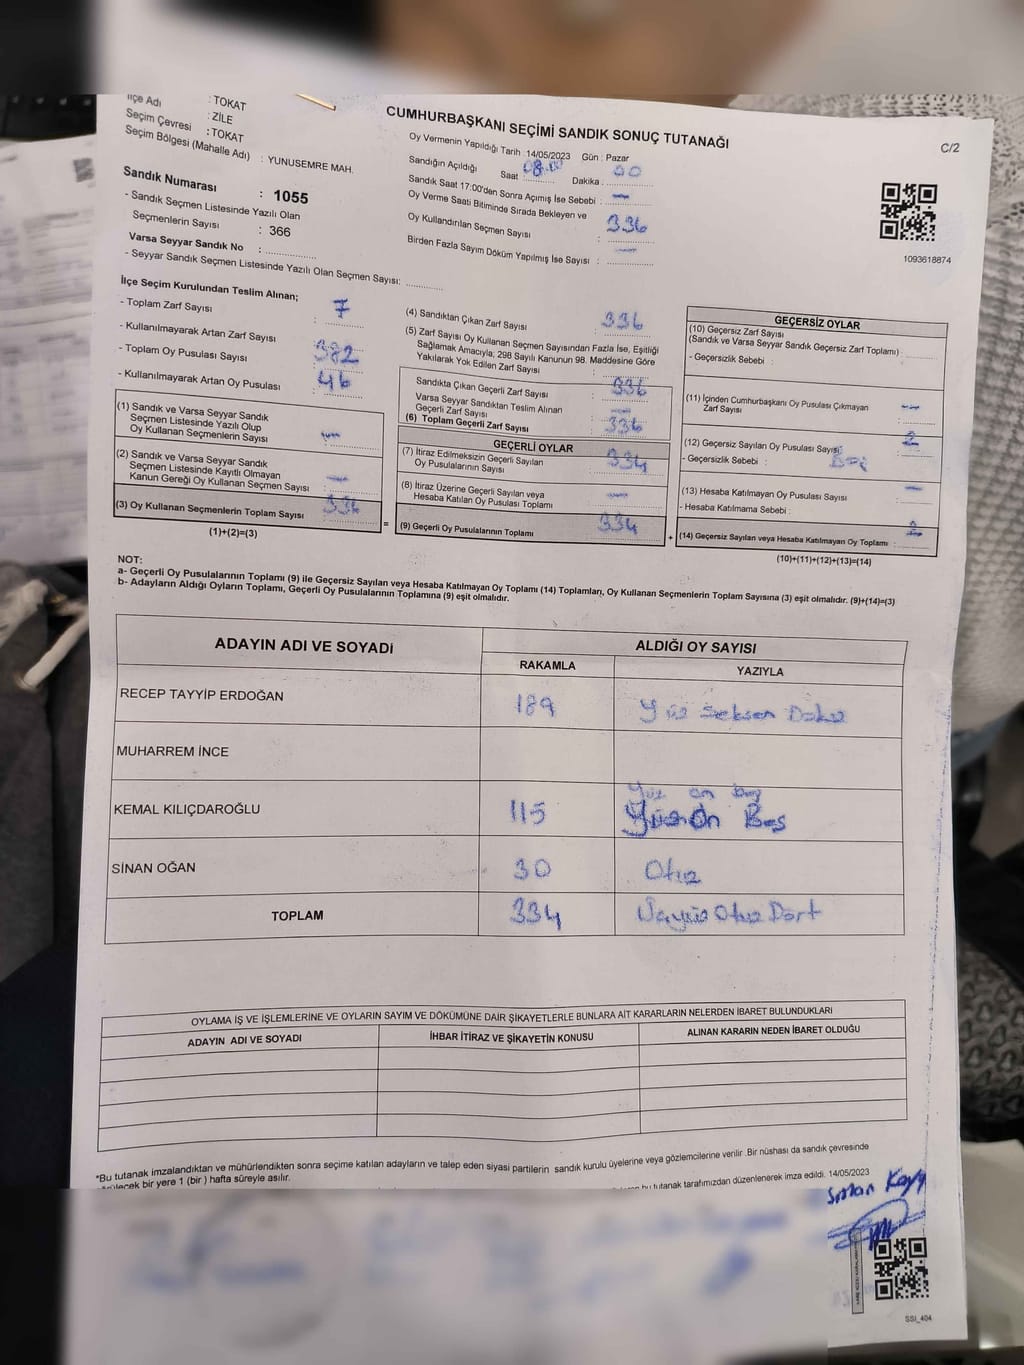 İlçe Adı : TOKAT
Seçim Çevresi : ZİLE
Seçim Bölgesi (Mahalle Adı) : TOKAT
: YUNUSEMRE MAH.
Sandık Numarası : 1055
- Sandık Seçmen Listesinde Yazılı Olan
Seçmenlerin Sayısı : 366
Varsa Seyyar Sandık No :
- Seyyar Sandık Seçmen Listesinde Yazılı Olan Seçmen Sayısı:
CUMHURBAŞKANI SEÇİMİ SANDIK SONUÇ TUTANAĞI
C/2
Oy Vermenin Yapıldığı Tarih :14/05/2023 Gün : Pazar
Sandığın Açıldığı Saat 08.00 Dakika : 00
Sandık Saat 17:00'den Sonra Açımış İse Sebebi : —
Oy Verme Saati Bitiminde Sırada Bekleyen ve
Oy Kullandırılan Seçmen Sayısı : 336
Birden Fazla Sayım Döküm Yapılmış İse Sayısı : —
1093618874
İlçe Seçim Kurulundan Teslim Alınan;
- Toplam Zarf Sayısı : 7
- Kullanılmayarak Artan Zarf Sayısı
- Toplam Oy Pusulası Sayısı : 382
- Kullanılmayarak Artan Oy Pusulası : 46
(1) Sandık ve Varsa Seyyar Sandık
Seçmen Listesinde Yazılı Olup
Oy Kullanan Seçmenlerin Sayısı : —
(2) Sandık ve Varsa Seyyar Sandık
Seçmen Listesinde Kayıtlı Olmayan
Kanun Gereği Oy Kullanan Seçmen Sayısı : —
(3) Oy Kullanan Seçmenlerin Toplam Sayısı : 336
(1)+(2)=(3)
=
(4) Sandıktan Çıkan Zarf Sayısı : 336
(5) Zarf Sayısı Oy Kullanan Seçmen Sayısından Fazla İse, Eşitliği
Sağlamak Amacıyla; 298 Sayılı Kanunun 98. Maddesine Göre
Yakılarak Yok Edilen Zarf Sayısı :
Sandıkta Çıkan Geçerli Zarf Sayısı : 336
Varsa Seyyar Sandıktan Teslim Alınan
Geçerli Zarf Sayısı : —
(6) Toplam Geçerli Zarf Sayısı : 336
GEÇERLİ OYLAR
(7) İtiraz Edilmeksizin Geçerli Sayılan
Oy Pusulalarının Sayısı : 334
(8) İtiraz Üzerine Geçerli Sayılan veya
Hesaba Katılan Oy Pusulası Toplamı : —
(9) Geçerli Oy Pusulalarının Toplamı : 334
+
GEÇERSİZ OYLAR
(10) Geçersiz Zarf Sayısı
(Sandık ve Varsa Seyyar Sandık Geçersiz Zarf Toplamı) :
- Geçersizlik Sebebi :
(11) İçinden Cumhurbaşkanı Oy Pusulası Çıkmayan
Zarf Sayısı : —
(12) Geçersiz Sayılan Oy Pusulası Sayısı : 2
- Geçersizlik Sebebi :
(13) Hesaba Katılmayan Oy Pusulası Sayısı : —
- Hesaba Katılmama Sebebi :
(14) Geçersiz Sayılan veya Hesaba Katılmayan Oy Toplamı : 2
(10)+(11)+(12)+(13)=(14)
NOT:
a- Geçerli Oy Pusulalarının Toplamı (9) ile Geçersiz Sayılan veya Hesaba Katılmayan Oy Toplamı (14) Toplamları, Oy Kullanan Seçmenlerin Toplam Sayısına (3) eşit olmalıdır. (9)+(14)=(3)
b- Adayların Aldığı Oyların Toplamı, Geçerli Oy Pusulalarının Toplamına (9) eşit olmalıdır.
ADAYIN ADI VE SOYADI ALDIĞI OY SAYISI
RAKAMLA YAZIYLA
RECEP TAYYİP ERDOĞAN 189 Yüz seksen Dokuz
MUHARREM İNCE
KEMAL KILIÇDAROĞLU 115 Yüz on beş
Yüz On Beş
SİNAN OĞAN 30 Otuz
TOPLAM 334 Üçyüz Otuz Dört
OYLAMA İŞ VE İŞLEMLERİNE VE OYLARIN SAYIM VE DÖKÜMÜNE DAİR ŞİKAYETLERLE BUNLARA AİT KARARLARIN NELERDEN İBARET BULUNDUKLARI
ADAYIN ADI VE SOYADI İHBAR İTİRAZ VE ŞİKAYETİN KONUSU ALINAN KARARIN NEDEN İBARET OLDUĞU
*Bu tutanak imzalandıktan ve mühürlendikten sonra seçime katılan adayların ve talep eden siyasi partilerin sandık kurulu üyelerine veya gözlemcilerine verilir .Bir nüshası da sandık çevresinde
bir yere 1 (bir ) hafta süreyle asılır.
bu tutanak tarafımızdan düzenlenerek imza edildi. 14/05/2023
SSI_404